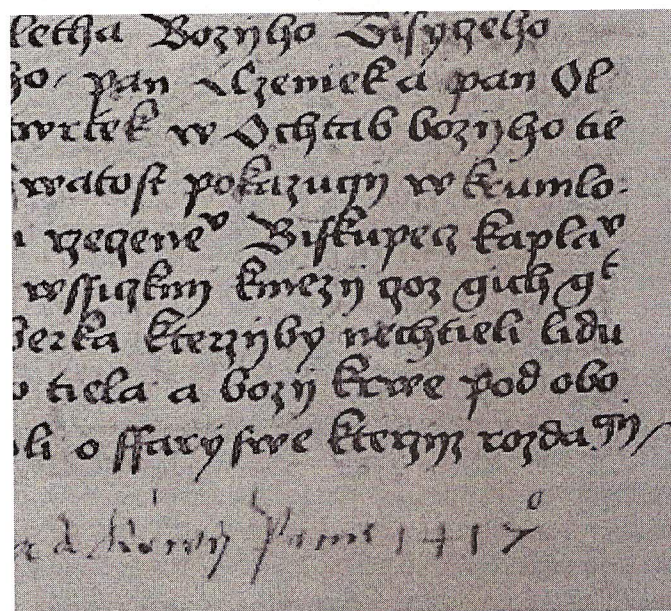 letha Bozijho Tisyczeho
ho, pan Czeniek a pan Ol
wrtek w Ochtab bozijho tie
watost pokazugij w krumlo
rzeczeneº Biskupecz kaplaº
wssiczkni kniezij coz gich gᵗ
berka kterzijby nechtieli lidu
tiela a bozij krwe pod obo
li o ffarÿ swe kterziz rozdagij
a 1417